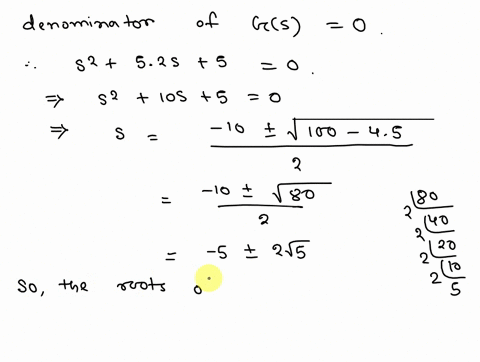 denominator of G(s) = 0.
∴ s2 + 5.2s + 5 = 0.
⇒ s2 + 10s + 5 = 0
⇒ s = -10 ± √100 - 4.5
2
= -10 ± √80
2
= -5 ± 2√5
2 80
2 40
2 20
2 10
5
So, the roots o